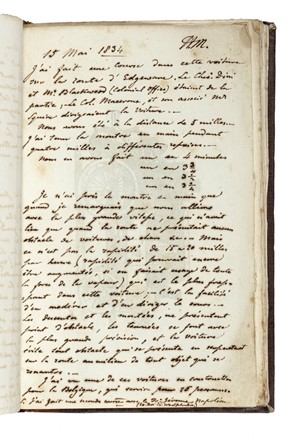 15 Mai 1834
J'ai fait une course dans cette voiture
sur la route d'Edgeware. Le Chev. Dini
et Mr. Blackwood (Colonial Office) étaient de la
partie, le Col. Maserone, et un associé Mr
Squire dirigeaient la voiture.
Nous avons été à la distance de 5 milles.
J'ai tenu la montre en main pendant
quatre milles à différentes reprises.
Nous en avons fait un en 4 minutes
un en 3
un en 3
en 3
Je n'ai pris la montre en main que
quand je remarquais que nous allions
avec la plus grande vitesse, ce qui n'avait
lieu que quand la route ne présentait aucun
obstacle de voitures, de chars &c. Mais
ce n'est pas la rapidité de 15 a 20 milles
par heure (rapidité qui pourrait encore
être augmentée, si on faisait usage de toute
la force de la vapeur) qui est la plus frap-
pant dans cette voiture, c'est la facilité
d'en modérer et d'en diriger la course.
les descentes et les montées, ne présentent
point d'obstacle, les tournées se font avec
la plus grande précision, et la voiture
évite tout obstacle qui se présente en
la route au milieu de tout objet qui se
rencontre.
J'ai vu une de ces voitures en
pour la Belgique, qui
J'ai fait une seconde course avec le Pce Jérome Napoléon